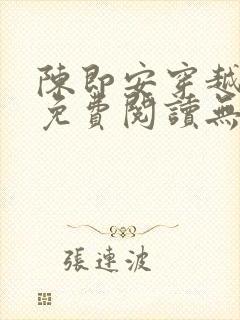 陳即安穿越
免費閱讀無
張連波